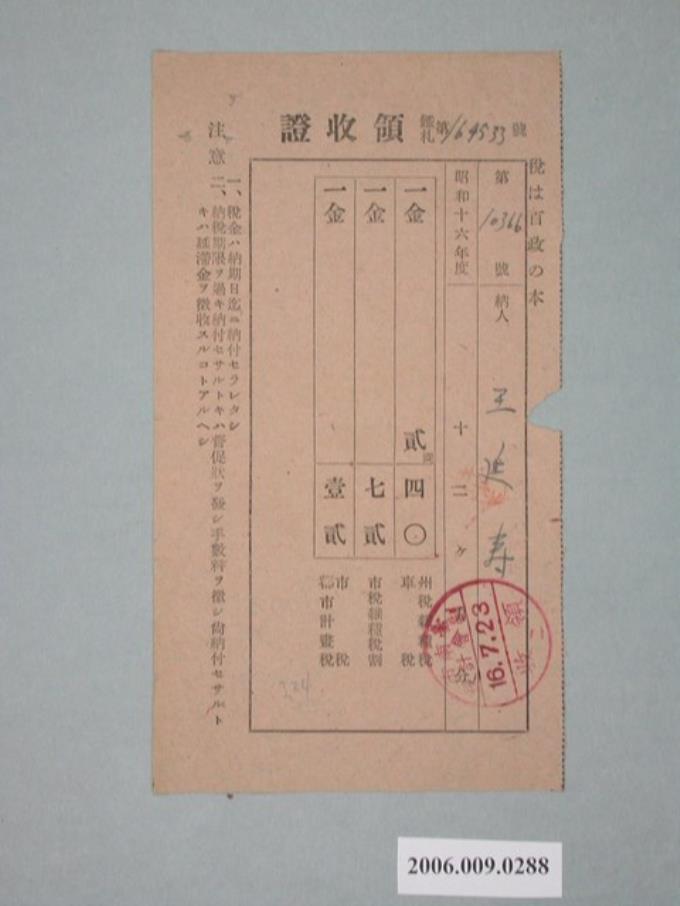 稅は百政の本
領收證 鑑札第169533號
第10366號 納人 王延寿
昭和十六年度 十二ヶ 分
一金 貳四〇 州稅雜種稅 車稅
一金 七貳 市稅雜種稅割
一金 壹貳 市稅 都市計畫稅
注意
一、稅金ハ納期日迄ニ納付セラレタシ
二、納稅期限ヲ過キ納付セサルトキハ督促狀ヲ發シ手數料ヲ徵シ尙納付セサルト
キハ延滯金ヲ徵收スルコトアルヘシ
領收
16.7.23
324
2006.009.0288